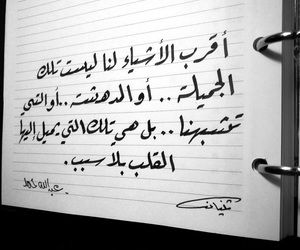 أقرب الأشياء لنا ليست تلك
الجميلة .. أو المدهشة .. أو التي
تشبهنا .. بل هي تلك التي يميل إليها
القلب بلا سبب .
عبدالله